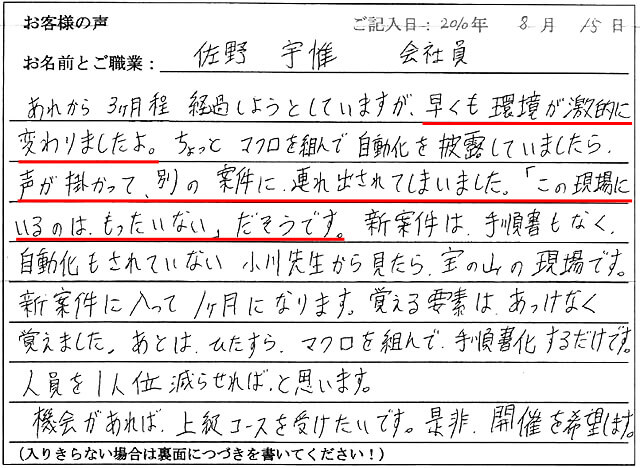 お客様の声 ご記入日:2010年 8月 15日
お名前とご職業: 佐野 宇惟 会社員
あれから 3ヶ月程 経過しようとしていますが、早くも 環境が激的に
変わりましたよ。ちょっと マクロを組んで 自動化を 披露していましたら、
声が 掛かって、別の 案件に、連れ出されてしまいました。「この現場に
いるのは、もったいない」だそうです。新案件は、手順書もなく、
自動化もされていない 小川先生から見たら、宝の山の 現場です。
新案件に入って 1ヶ月になります。覚える要素は、あっけなく
覚えました。あとは、ひたすら、マクロを組んで、手順書化するだけです。
人員を1人位 減らせれば、と思います。
機会があれば、上級コースを受けたいです。是非、開催を希望します。
(入りきらない場合は裏面につづきを書いてください!)